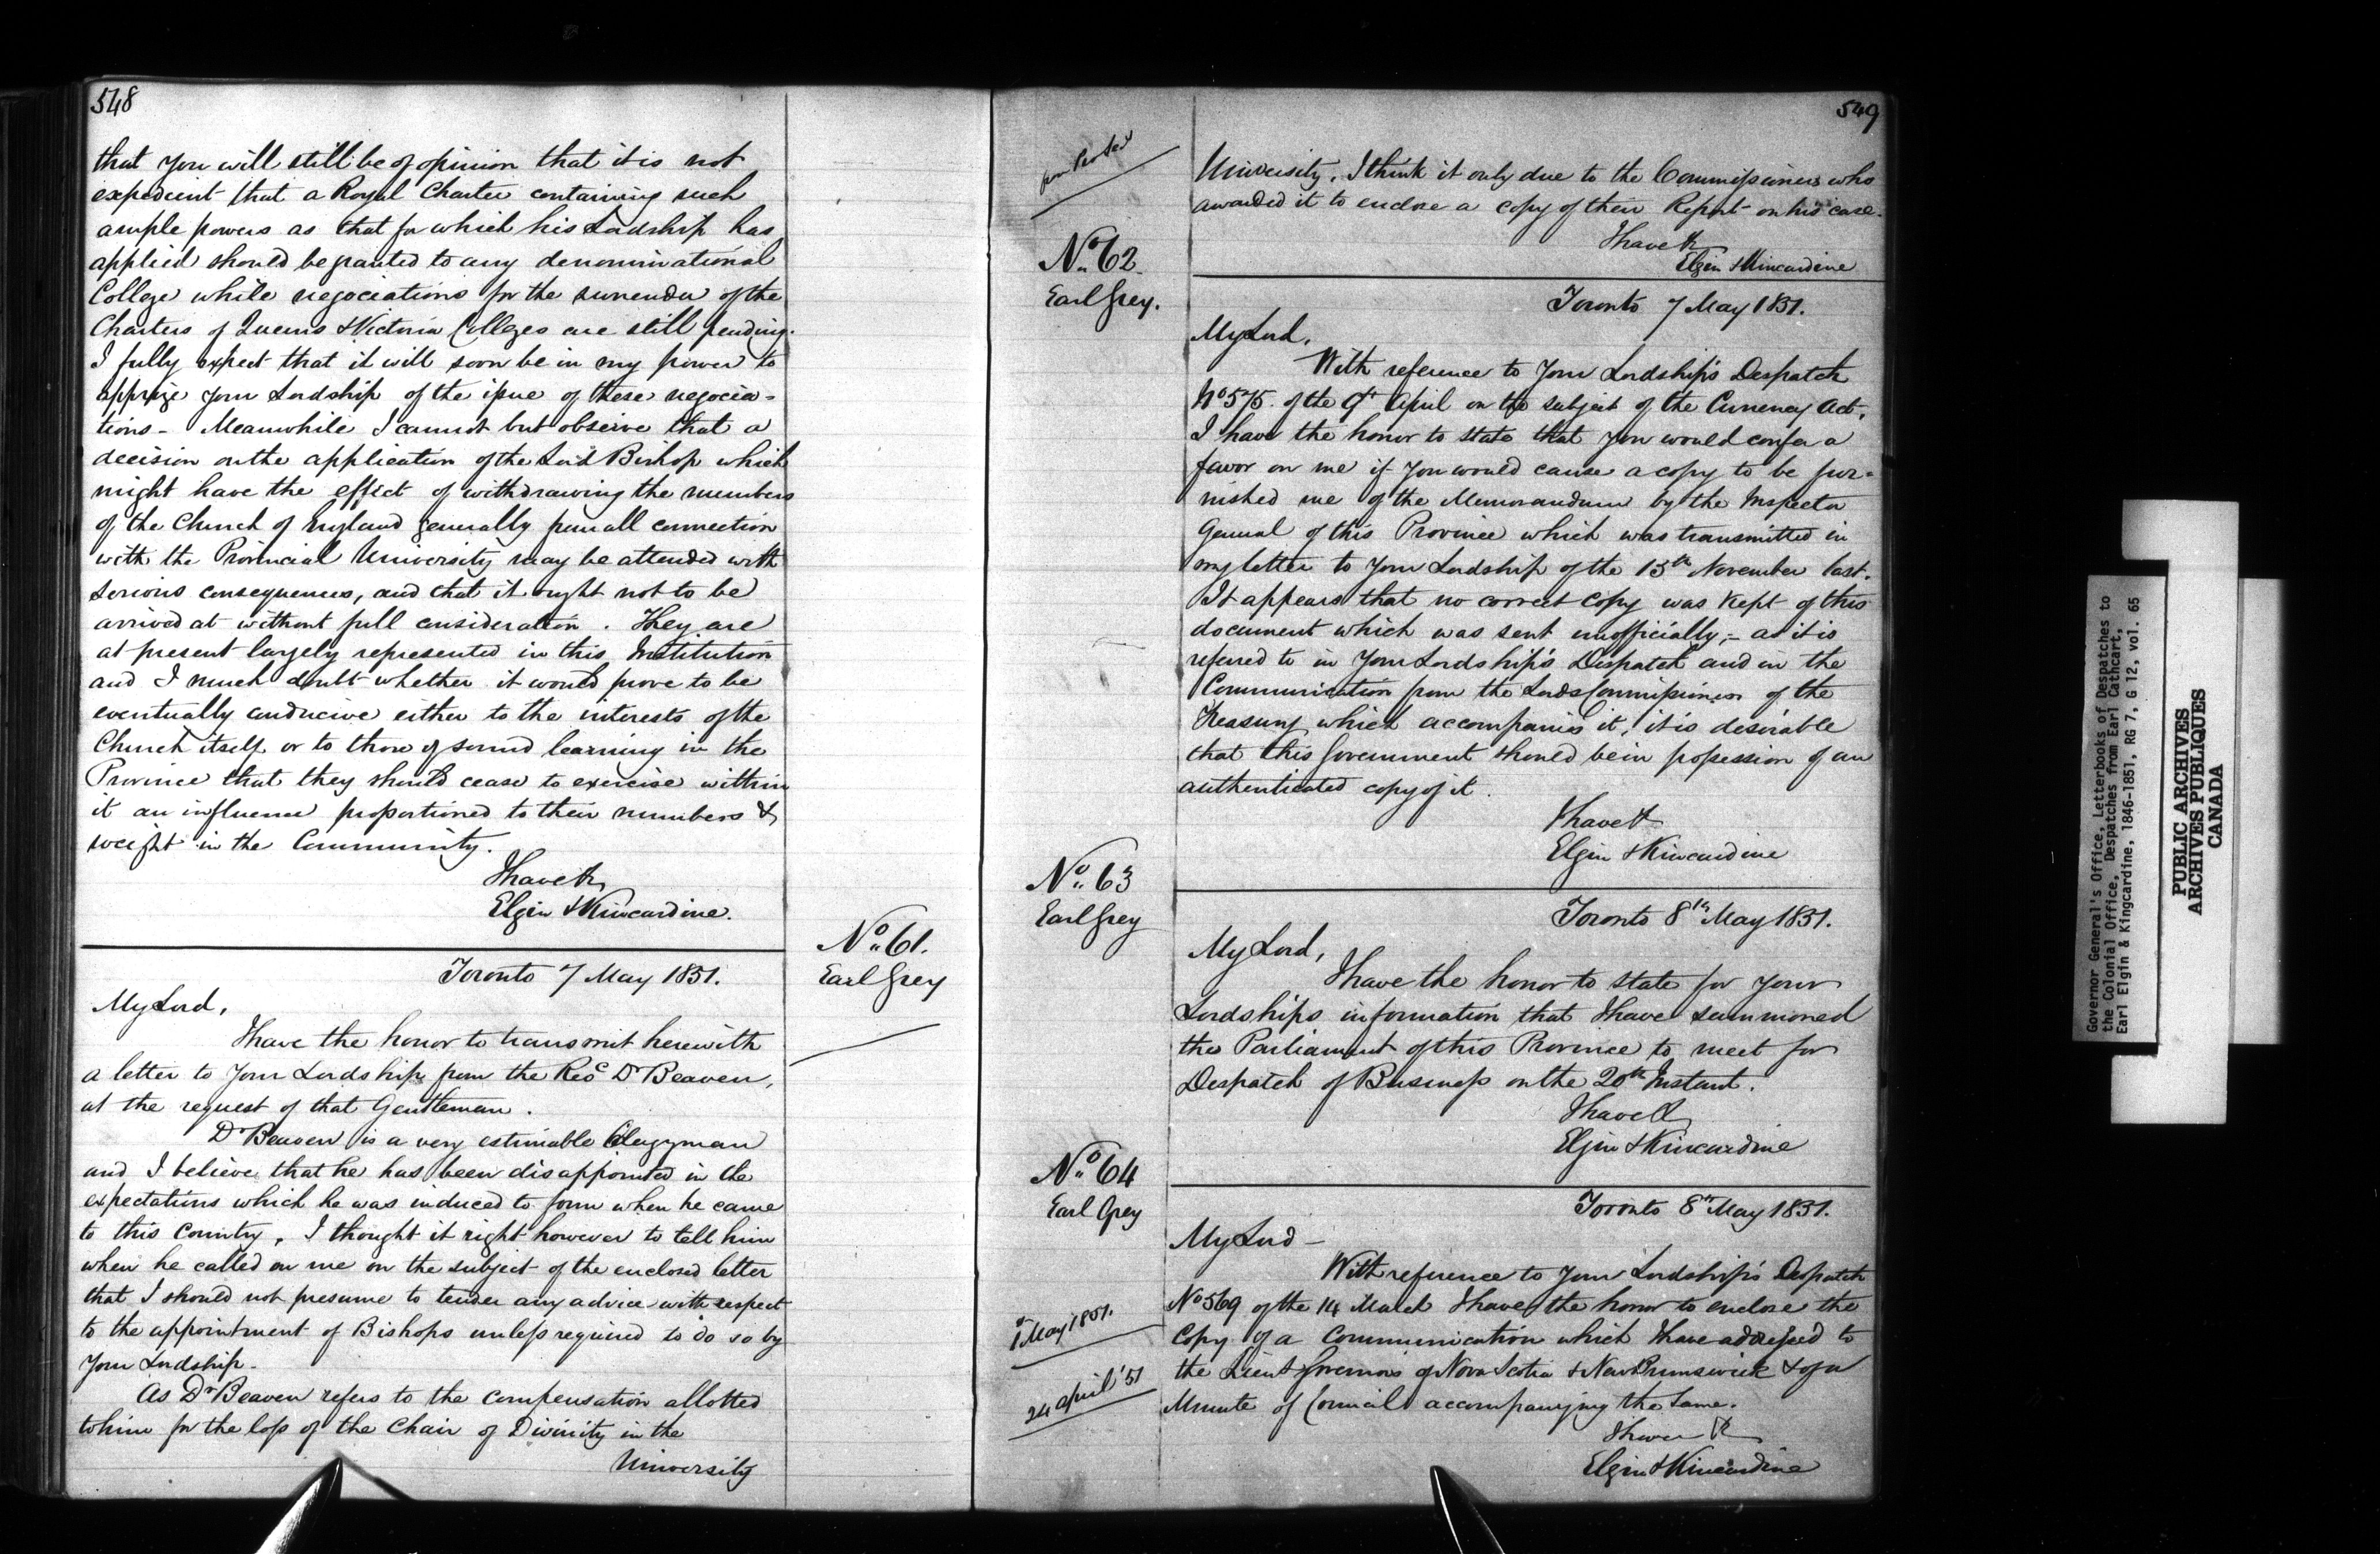 548
that you will still be of opinion that it is not
expedient that a Royal Charter containing such
ample powers as that for which his Lordship has
applied should be granted to any denominational
College while negociations for the surrender of the
Charters of Queens & Victoria Colleges are still pending.
I fully expect that it will soon be in my power to
apprize your Lordship of the issue of these negocia=
tions - Meanwhile I cannot but observe that a
decision on the application of the Lord Bishop which
might have the effect of withdrawing the members
of the Church of England generally from all connection
with the Provincial University may be attended with
serious consequences, and that it ought not to be
arrived at without full consideration. They are
at present largely represented in this Institution
and I much doubt whether it would prove to be
eventually conducive either to the interests of the
Church itself or to those of sound learning in the
Province that they should cease to exercise within
it an influence proportioned to their numbers &
weight in the Community.
I have &c
Elgin & Kincardine.
No. 61.
Earl Grey
Toronto 7 May 1851.
My Lord,
I have the honor to transmit herewith
a letter to Your Lordship from the Revd Dr Beaven,
at the request of that Gentleman.
Dr Beaven is a very estimable Clergyman
and I believe that he has been disappointed in the
expectations which he was induced to form when he came
to this Country, I thought it right however to tell him
when he called on me on the subject of the enclosed letter
that I should not presume to tender any advice with respect
to the appointment of Bishops unless required to do so by
Your Lordship -
As Dr Beaven refers to the compensation allotted
to him for the loss of the Chair of Divinity in the
University
549
University. I think it only due to the Commissioners who
awarded it to enclose a copy of their Report on his case.
I have &c
Elgin & Kincardine
No. 62.
Earl Grey.
Toronto 7 May 1851.
My Lord,
With reference to Your Lordship's Despatch
No 575. of the 9th April on the subject of the Currency Act,
I have the honor to state that you would confer a
favor on me if you would cause a copy to be fur=
nished me of the Memorandum by the Inspector
General of this Province which was transmitted in
my letter to Your Lordship of the 13th November last.
It appears that no correct copy was kept of this
document which was sent unofficially;- as it is
referred to in Your Lordship's Despatch and in the
Communication from the Lords Commissioners of the
Treasury which accompanies it, it is desirable
that this Government should be in possession of an
authenticated copy of it.
I have &c
Elgin & Kincardine
No. 63
Earl Grey
Toronto 8th May 1851.
My Lord,
I have the honor to state for your
Lordships information that I have summoned
the Parliament of this Province to meet for
Despatch of Business on the 20th Instant.
I have &c
Elgin & Kincardine
No. 64
Earl Grey
Toronto 8th May 1851.
My Lord -
With reference to Your Lordship's Despatch
No 569 of the 14 March I have the honor to enclose the
Copy of a Communication which I have addressed to
the Lieut Governors of Nova Scotia & New Brunswick & of a
Minute of Council accompanying the same.
1 May 1851.
24 April '51
I have &c
Elgin & Kincardine
Governor General's Office, Letterbooks of Despatches to
the Colonial Office, Despatches from Earl Cathcart,
Earl Elgin & Kingcardine, 1846-1851, RG 7, G 12, vol. 65
PUBLIC ARCHIVES
ARCHIVES PUBLIQUES
CANADA